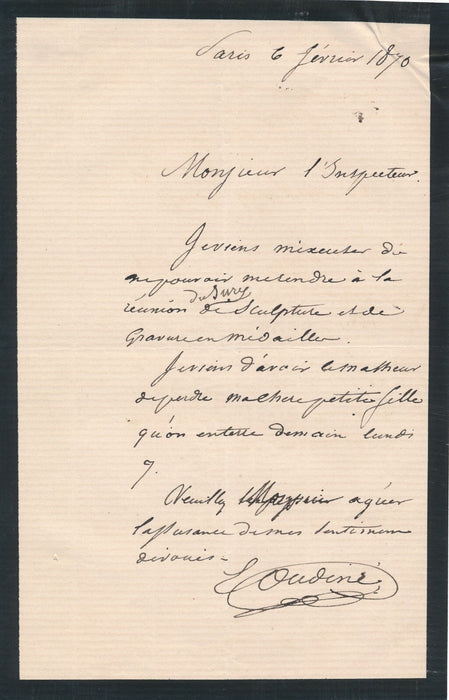 Paris 6 février 1870
Monsieur l'Inspecteur.
Je viens m'excuser de
ne pouvoir me rendre à la
du Jury
réunion de Sculpture et de
Gravure en médailles.
Je viens d'avoir le malheur
de perdre ma chère petite fille
qu'on enterre demain lundi
7.
Veuillez Monsieur agréer
l'assurance de mes sentimens
dévoués –
E Oudiné